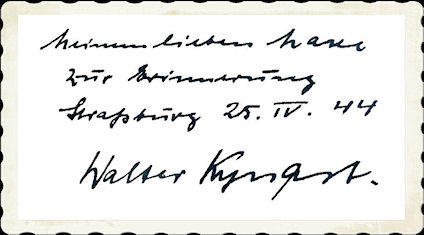 Meinem lieben
zur Erinnerung
Straßburg 25. IV. 44
Walter